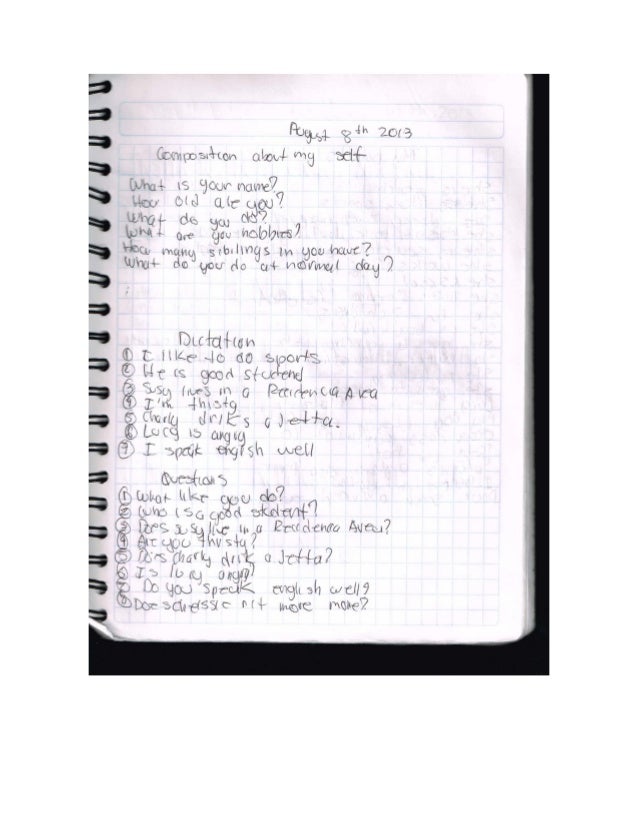 August 8th 2013
Composition about my self
What is your name?
How old are you?
What do you do?
What are you hobbies?
How many sibilings in you have?
What do you do at normal day?
Dictation
① I like to do sports
② He is good studend
③ Susy lives in a Recidencia Area
④ I'm thisty
⑤ Charly driks a Jetta.
⑥ Lucy is angry
⑦ I speak english well
Questions
① What like you do?
② Who is a good student?
③ Does susy live in a Recidencia Area?
④ Are you thirsty?
⑤ Does Charly drik a Jetta?
⑥ Is lucy angry?
⑦ Do you speak english well?
⑧ more more?